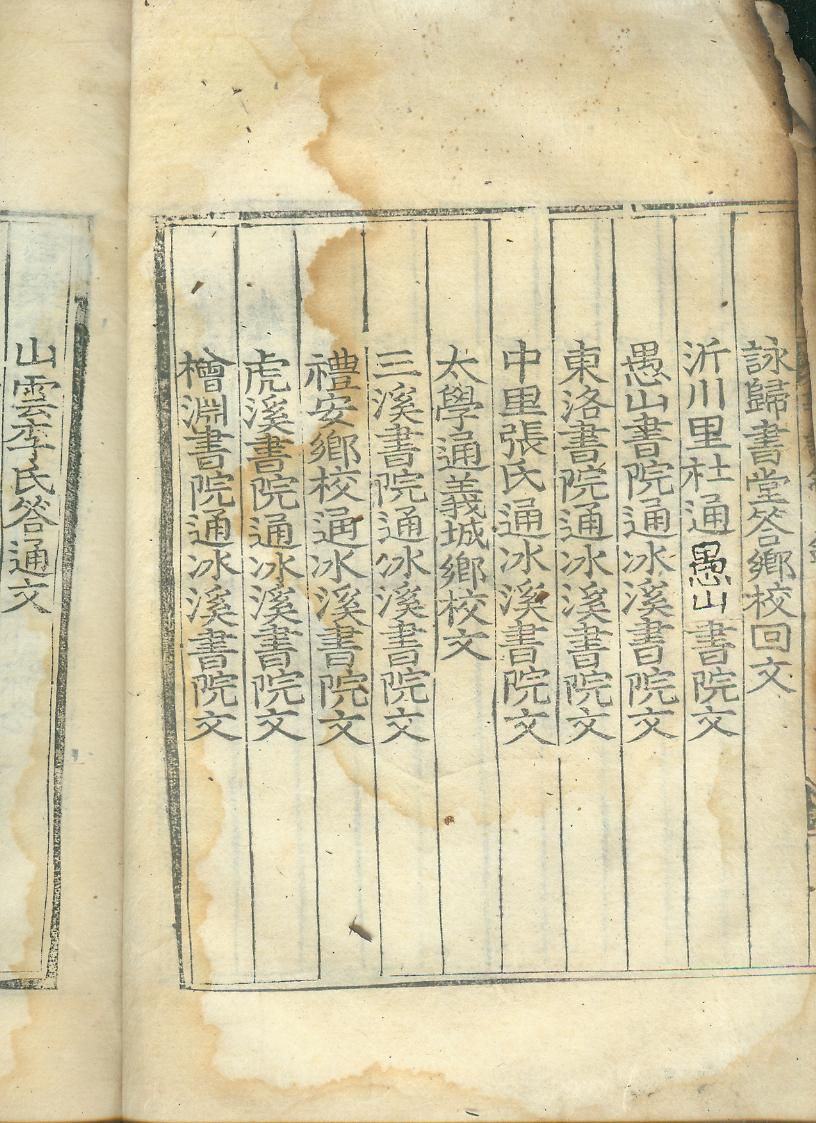 詠歸書堂答鄉校回文
沂川里社通愚山書院文
愚山書院通氷溪書院文
東洛書院通氷溪書院文
中里張氏通氷溪書院文
太學通義城鄉校文
三溪書院通氷溪書院文
禮安鄉校通氷溪書院文
虎溪書院通氷溪書院文
檜淵書院通氷溪書院文
山雲李氏答通文